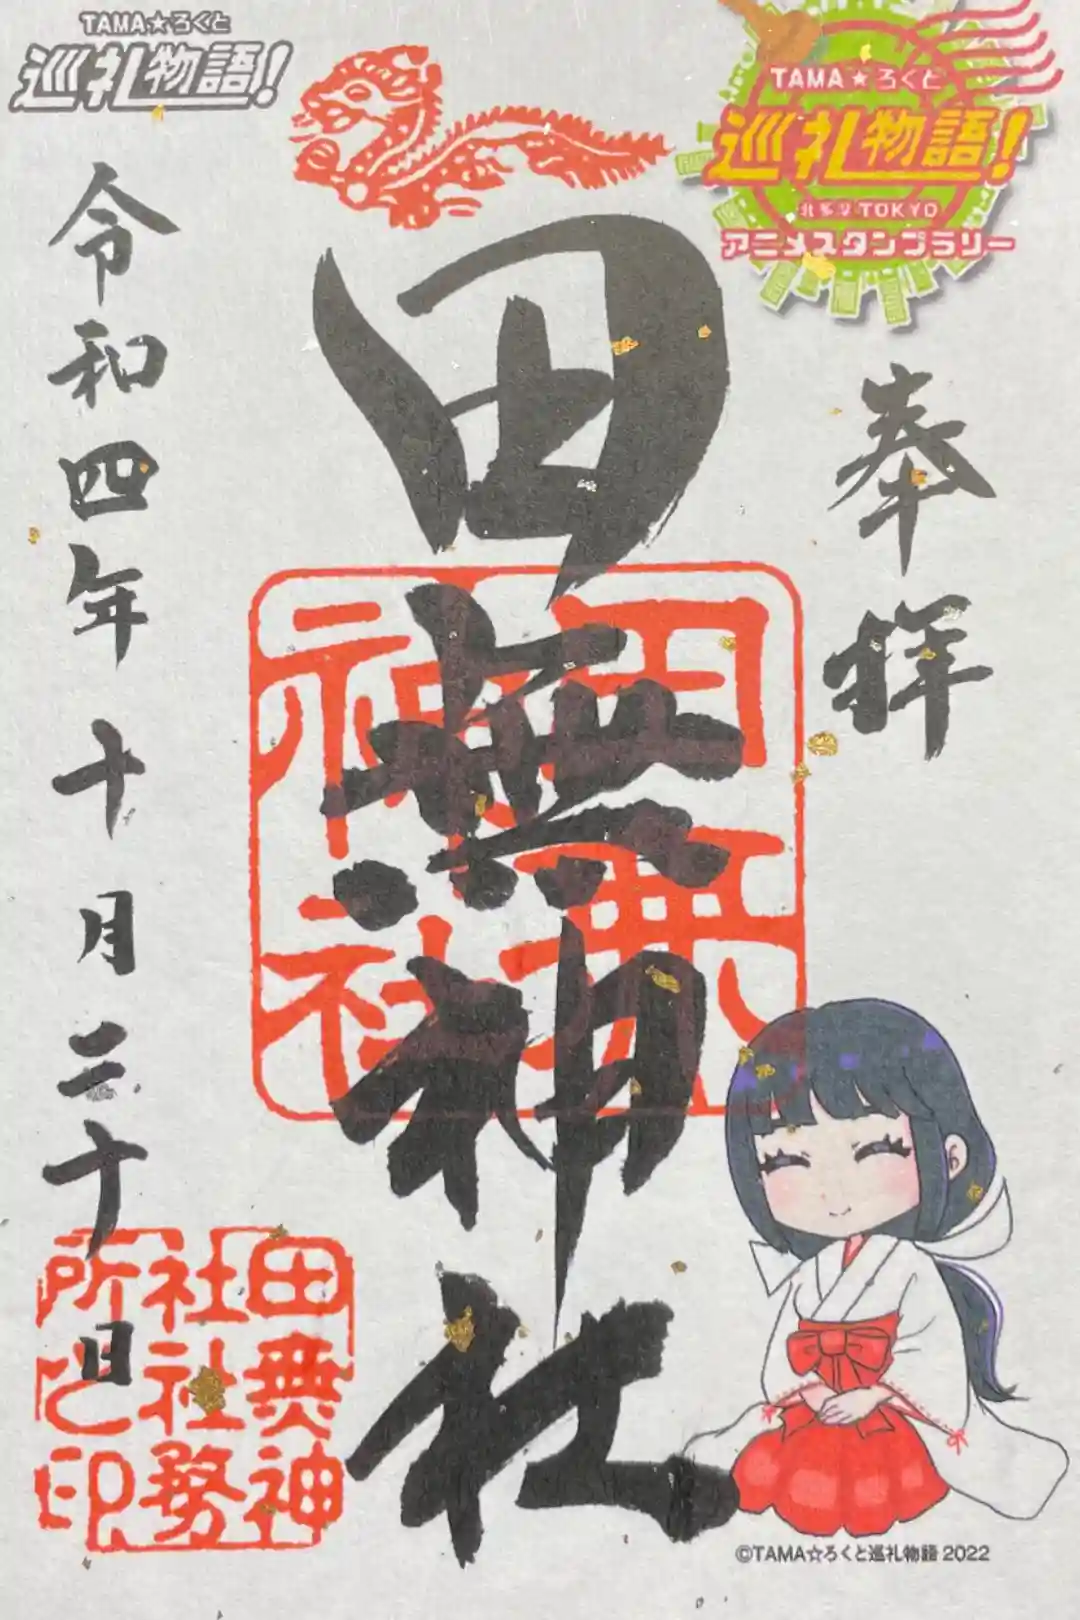 TAMA★ろくと
巡礼物語!
TAMA★ろくと
巡礼物語!
北多摩TOKYO
アニメスタンプラリー
奉拝
田無神社
田無神社
令和四年十月二十日
田無神社社務所之印
©TAMA☆ろくと巡礼物語 2022